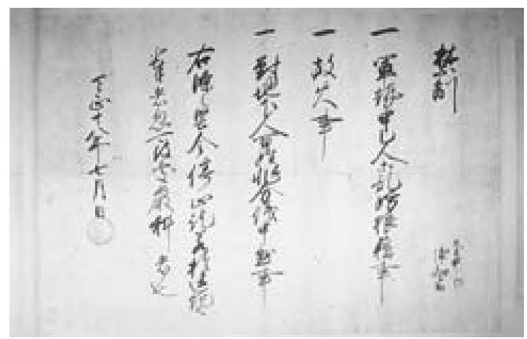 禁制
一 軍勢甲乙人等乱妨狼藉事
一 放火事
一 對地下人百姓非分儀申懸事
右條々堅令停止訖若於違犯
輩者忽可被處嚴科者也
天正十八年七月日